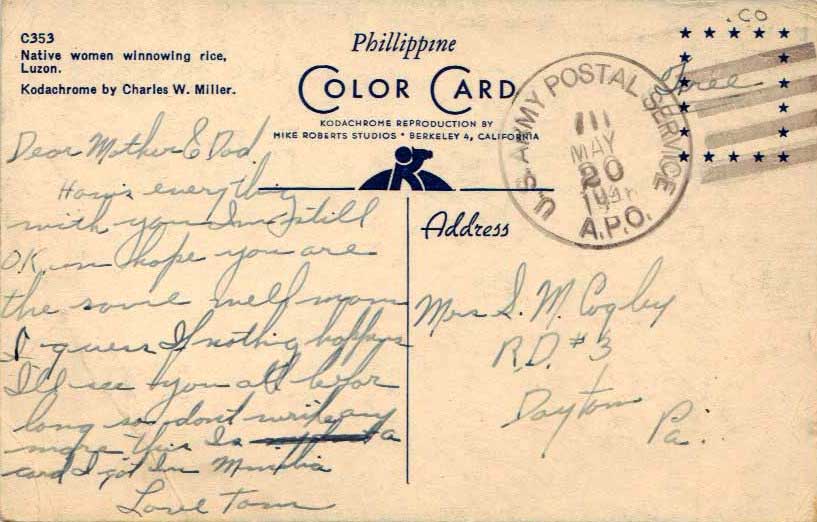 C353
Native women winnowing rice,
Luzon.
Kodachrome by Charles W. Miller.
Phillippine
COLOR CARD
KODACHROME REPRODUCTION BY
MIKE ROBERTS STUDIOS • BERKELEY 4, CALIFORNIA
U.S. ARMY POSTAL SERVICE
MAY
20
A.P.O.
Free
CO
Dear Mother & Dad.
How's everything
with you Im still
O.K. an hope you are
the same well mom
I guess If nothing happens
I'll see you all befor
long so don't write any
more this Is a
card I got In Minilia
Love Tom
Address
Mrs S. M. Cogley
R.D. #3
Dayton
Pa.